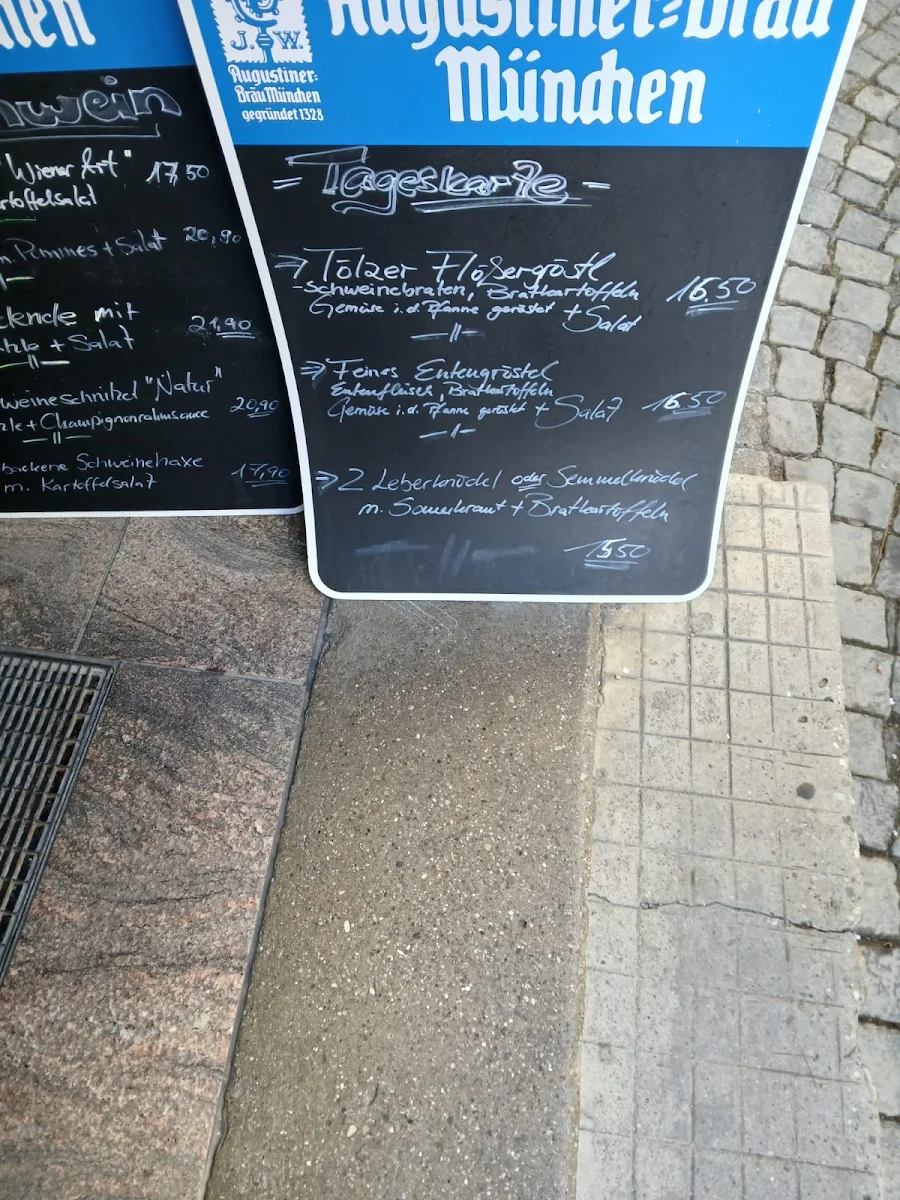 len
chwein
"Wiener Art" 17,50
rtoffelsalat
n Pommes + Salat 20,90
ckende mit
hle + Salat 21,90
weineschnitzel "Natur"
zle + Champignonrahmsauce 20,90
backene Schweinehaxe
m. Kartoffelsalat 17,90
J. W.
Augustiner=
Bräu München
gegründet 1328
Augustiner=Bräu
München
= Tageskarte =
Tölzer Flößergöstl
-schweinebraten, Bratkartoffeln 16,50
Gemüse i.d. Pfanne geröstet + Salat
Feines Entengröstel
Entenfleisch, Bratkartoffeln
Gemüse i.d. Pfanne geröstet + Salat 16,50
2 Leberknödel oder Semmelknödel
m. Sauerkraut + Bratkartoffeln
15,50